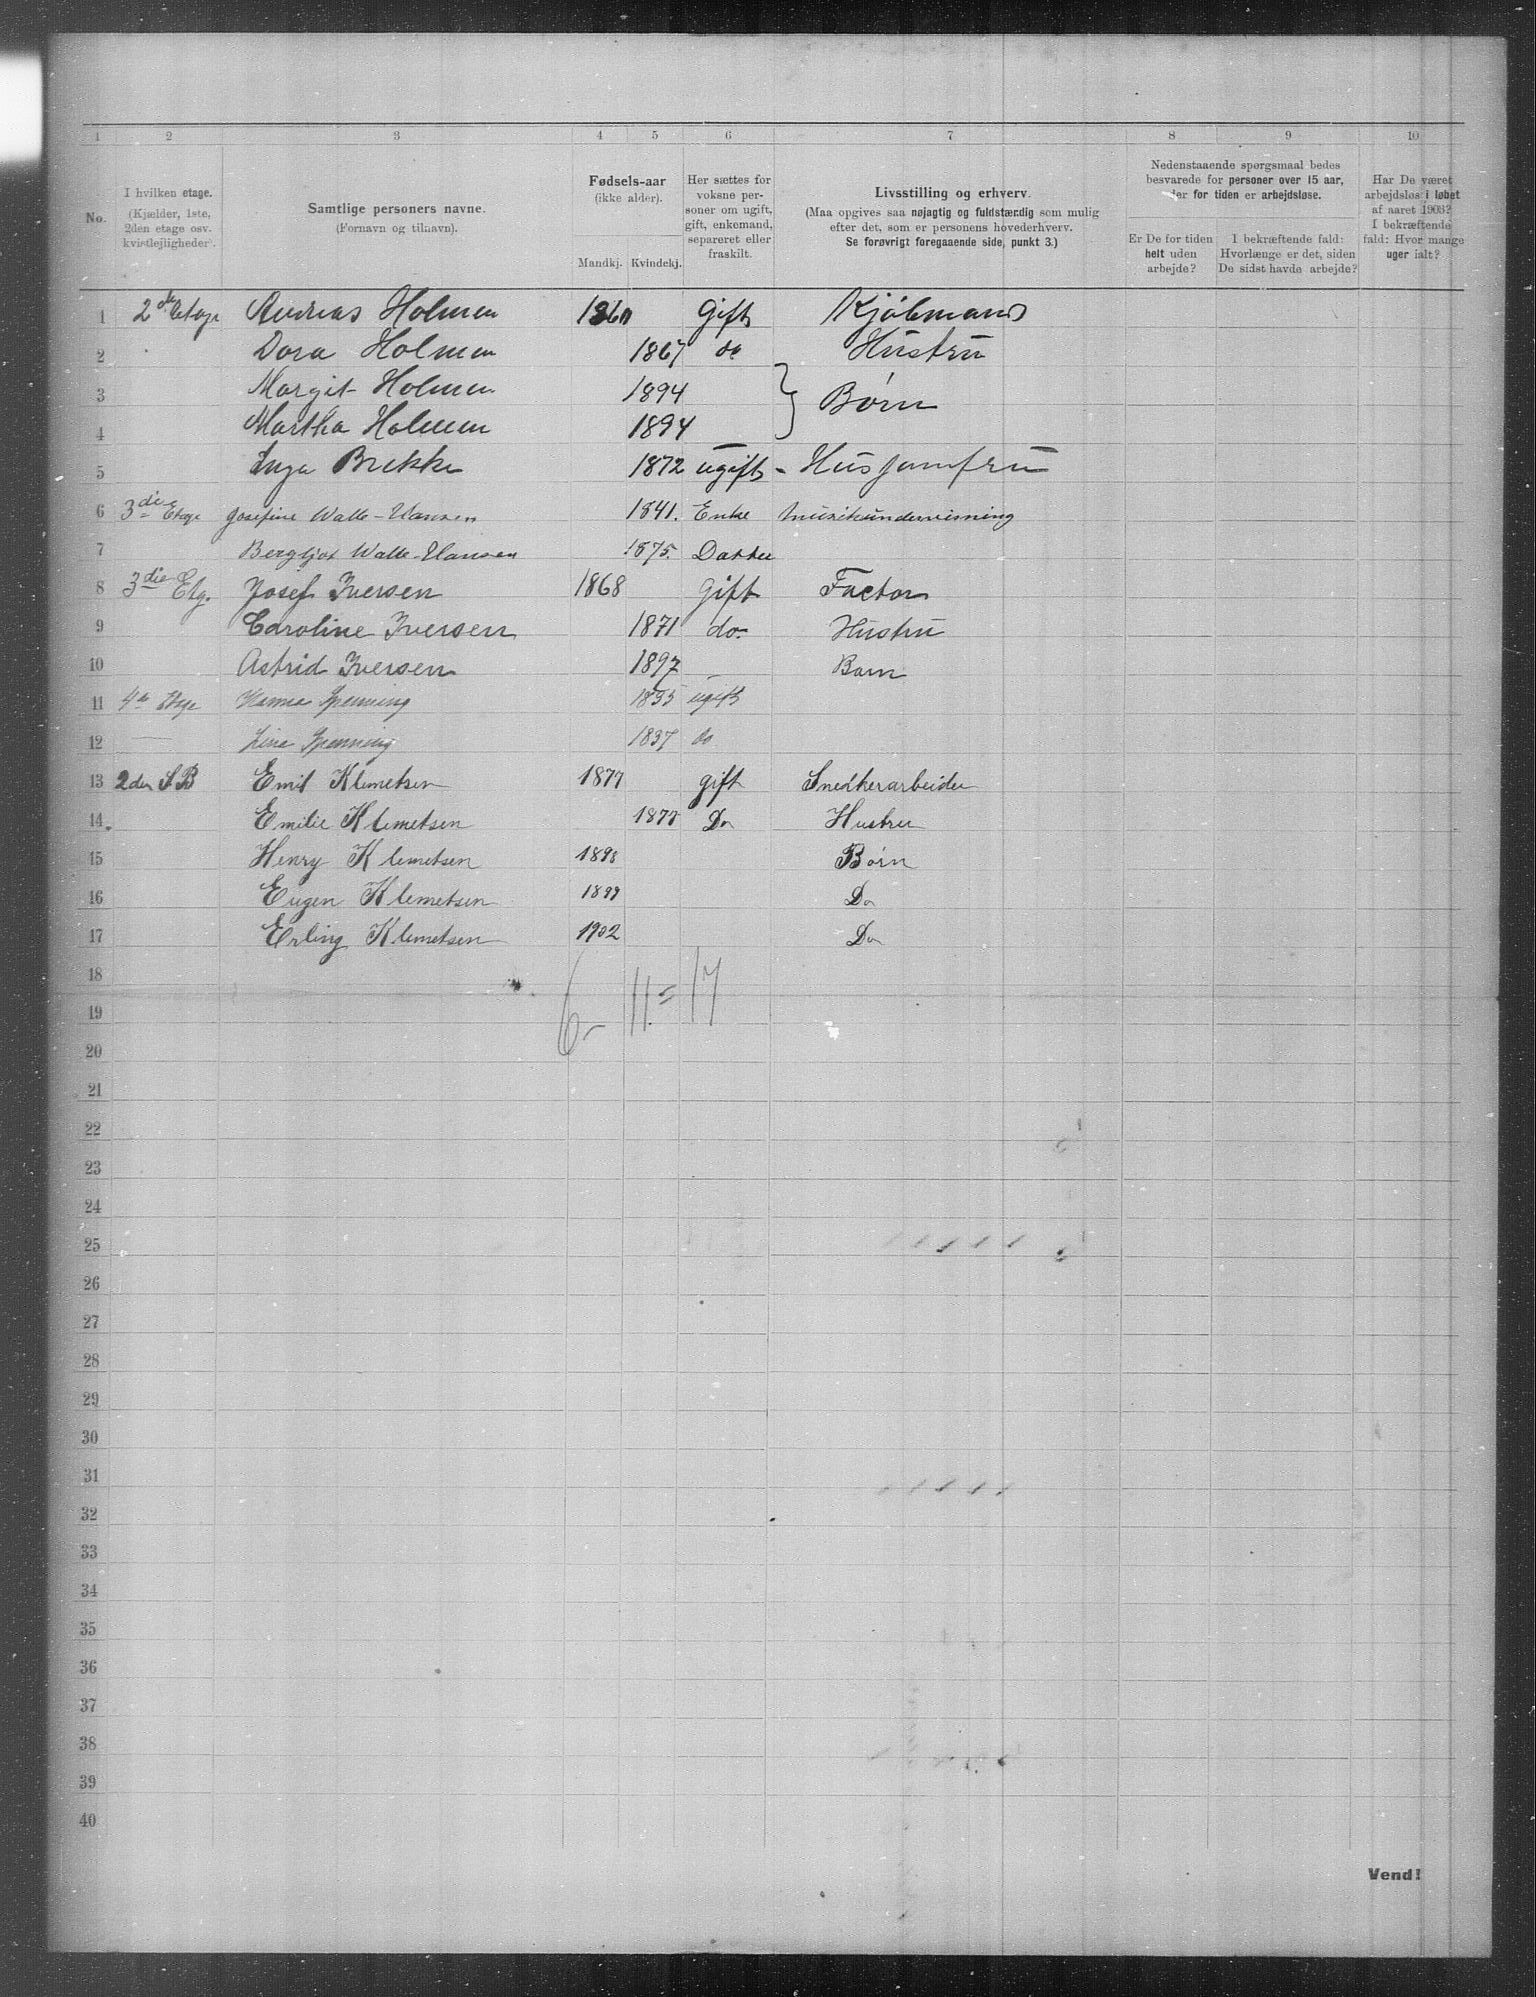 1 2 3 4 5 6 7 8 9 10
No.
I hvilken etage.
(Kjælder, 1ste,
2den etage osv.
kvistlejligheder).
Samtlige personers navne.
(Fornavn og tilnavn).
Fødsels-aar
(ikke alder).
Mandkj. Kvindekj.
Her sættes for
voksne per-
soner om ugift,
gift, enkemand,
separeret eller
fraskilt.
Livsstilling og erhverv.
(Maa opgives saa nøjagtig og fuldstændig som mulig
efter det, som er personens hovederhverv.
Se forøvrigt foregaaende side, punkt 3.)
Nedenstaaende spørgsmaal bedes
besvarede for personer over 15 aar,
der for tiden er arbejdsløse.
Er De for tiden
helt uden
arbejde?
I bekræftende fald:
Hvorlænge er det, siden
De sidst havde arbejde?
Har De været
arbejdsløs i løbet
af aaret 1903?
I bekræftende
fald: Hvor mange
uger ialt?
1 2de Etage Andreas Holmen 1860 Gift Kjøbmand
2 Dora Holmen 1867 do Hustru
3 Margit Holmen 1894 } Børn
4 Martha Holmen 1894
5 Inga Brekke 1872 ugift - Husjomfru
6 3die Etage Josefine Walle-Hansen 1841. Enke Musikundervisning
7 Bergljot Walle-Hansen 1875. Datter
8 3die Etg. Josef Iversen 1868 gift Factor
9 Caroline Iversen 1871 do. Hustru
10 Astrid Iversen 1897 Barn
11 4de Etage Hanna Spenning 1835 ugift
12 Lina Spenning 1837 do
13 2den S B Emil Klemetsen 1877 gift Snedkerarbeider
14 Emilie Klemetsen 1877 Do Hustru
15 Henry Klemetsen 1898 Børn
16 Eugen Klemetsen 1899 Do
17 Erling Klemetsen 1902 Do
18
6 - 11 = 17
19
20
21
22
23
24
25
26
27
28
29
30
31
32
33
34
35
36
37
38
39
40
Vend!